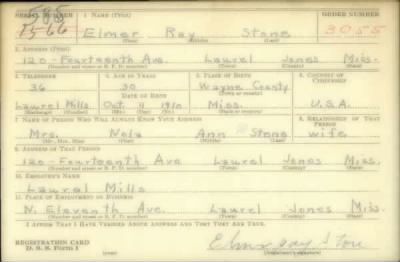 SERIAL NUMBER 1. NAME (Print) ORDER NUMBER
585
1566 Elmer Ray Stone 3055
(First) (Middle) (Last)
2. ADDRESS (Print)
120 - Fourteenth Ave. Laurel Jones Miss.
(Number and street or R. F. D. number) (Town) (County) (State)
3. TELEPHONE 4. AGE IN YEARS 5. PLACE OF BIRTH 6. COUNTRY OF CITIZENSHIP
36 30 Wayne County
DATE OF BIRTH (Town or county)
Laurel Mills Oct. 11 1910 Miss. U.S.A.
(Exchange) (Number) (Mo.) (Day) (Yr.) (State or country)
7. NAME OF PERSON WHO WILL ALWAYS KNOW YOUR ADDRESS 8. RELATIONSHIP OF THAT PERSON
Mrs. Nola Ann Stone wife
(Mr., Mrs., Miss) (First) (Middle) (Last)
9. ADDRESS OF THAT PERSON
120 - Fourteenth Ave Laurel Jones Miss.
(Number and street or R. F. D. number) (Town) (County) (State)
10. EMPLOYER'S NAME
Laurel Mills
11. PLACE OF EMPLOYMENT OR BUSINESS
N. Eleventh Ave. Laurel Jones Miss
(Number and street or R. F. D. number) (Town) (County) (State)
I AFFIRM THAT I HAVE VERIFIED ABOVE ANSWERS AND THAT THEY ARE TRUE.
REGISTRATION CARD
D. S. S. Form 1 (over) Elmer Ray Stone
(Registrant's signature)